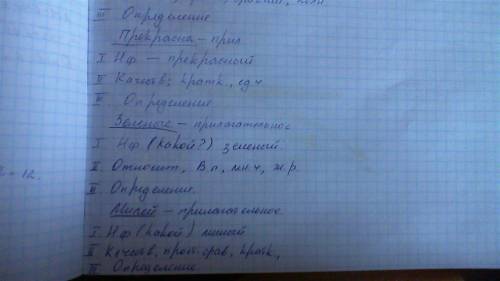 III Определение
Прекрасна - прил
I Нф - прекрасный
II Качеств, кратк., ед.ч
III Определение
Зелёные - прилагательное
I Нф (какой?) зеленый.
II. Относит, В.п, мн.ч, ж.р.
III Определение.
Милой - прилагательное.
I. Нф (какой) милый
II Качеств, прост. срав, кратк.,
III Определение